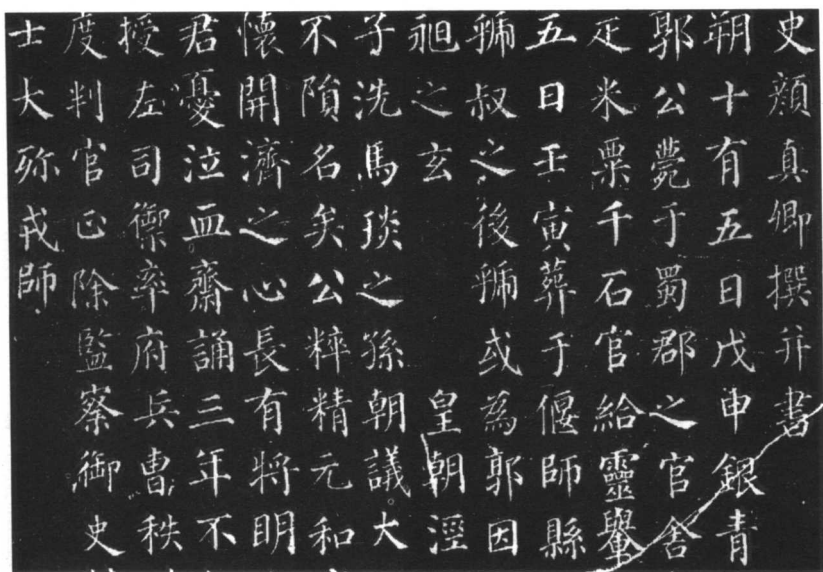 史顏真卿撰并書
朔十有五日戊申銀青
郭公薨于蜀郡之官舍
疋米粟千石官給靈轝
五日壬寅葬于偃師縣
虢叔之後虢或為郭因
昶之玄　皇朝涇
子洗馬琰之孫朝議大
不隕名矣公粹精元和
懷開濟之心長有將明
君憂泣血齋誦三年不
授左司禦率府兵曹秩
度判官正除監察御史
士大殄戎師